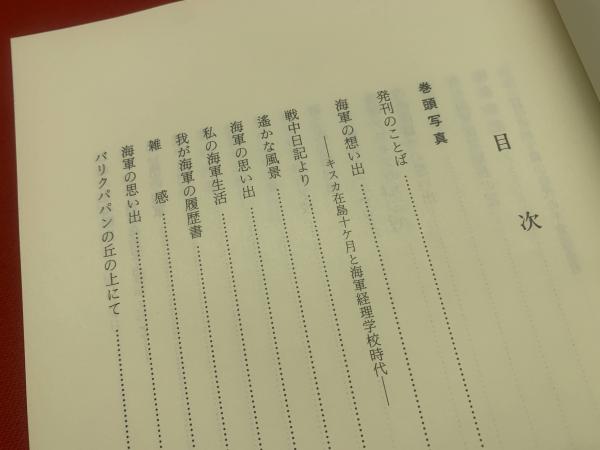 目次
巻頭写真
発刊のことば
海軍の想い出
――キスカ在島十ケ月と海軍経理学校時代――
戦中日記より
遙かな風景
海軍の思い出
私の海軍生活
我が海軍の履歴書
雑感
海軍の思い出
バリクパパンの丘の上にて